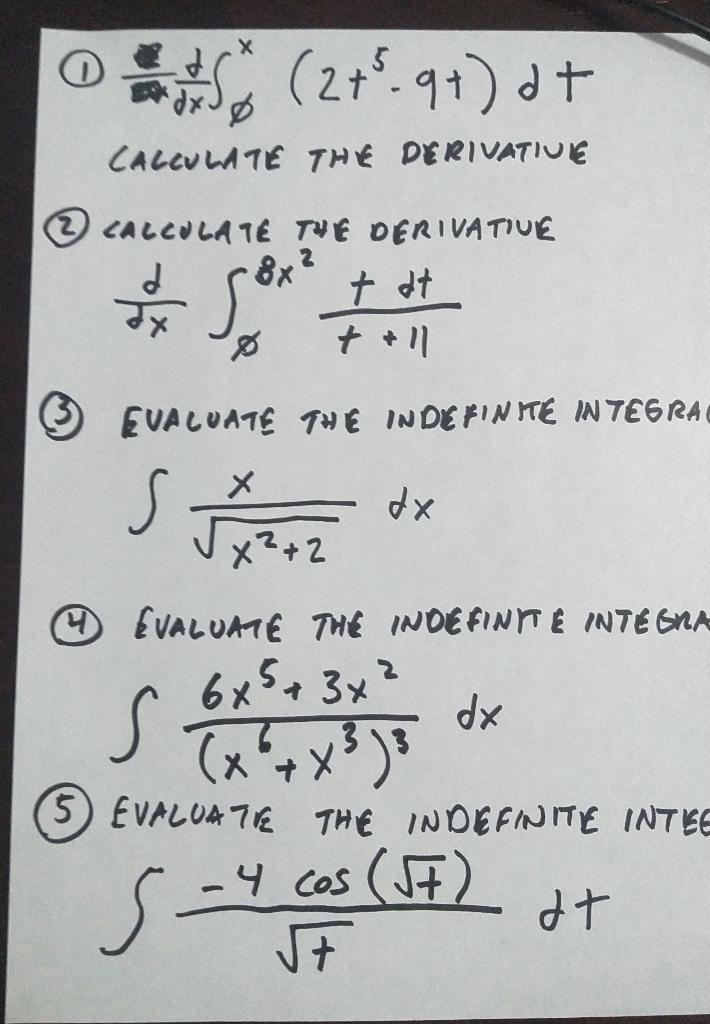 ① d/dx ∫₀ˣ (2t⁵-9t) dt
CALCULATE THE DERIVATIVE
② CALCULATE THE DERIVATIVE
d/dx ∫₀^(8x²) t dt / t+11
③ EVALUATE THE INDEFINITE INTEGRA
∫ x / √(x²+2) dx
④ EVALUATE THE INDEFINITE INTEGRA
∫ 6x⁵+3x² / (x⁶+x³)³ dx
⑤ EVALUATE THE INDEFINITE INTEG
∫ -4 cos(√t) / √t dt